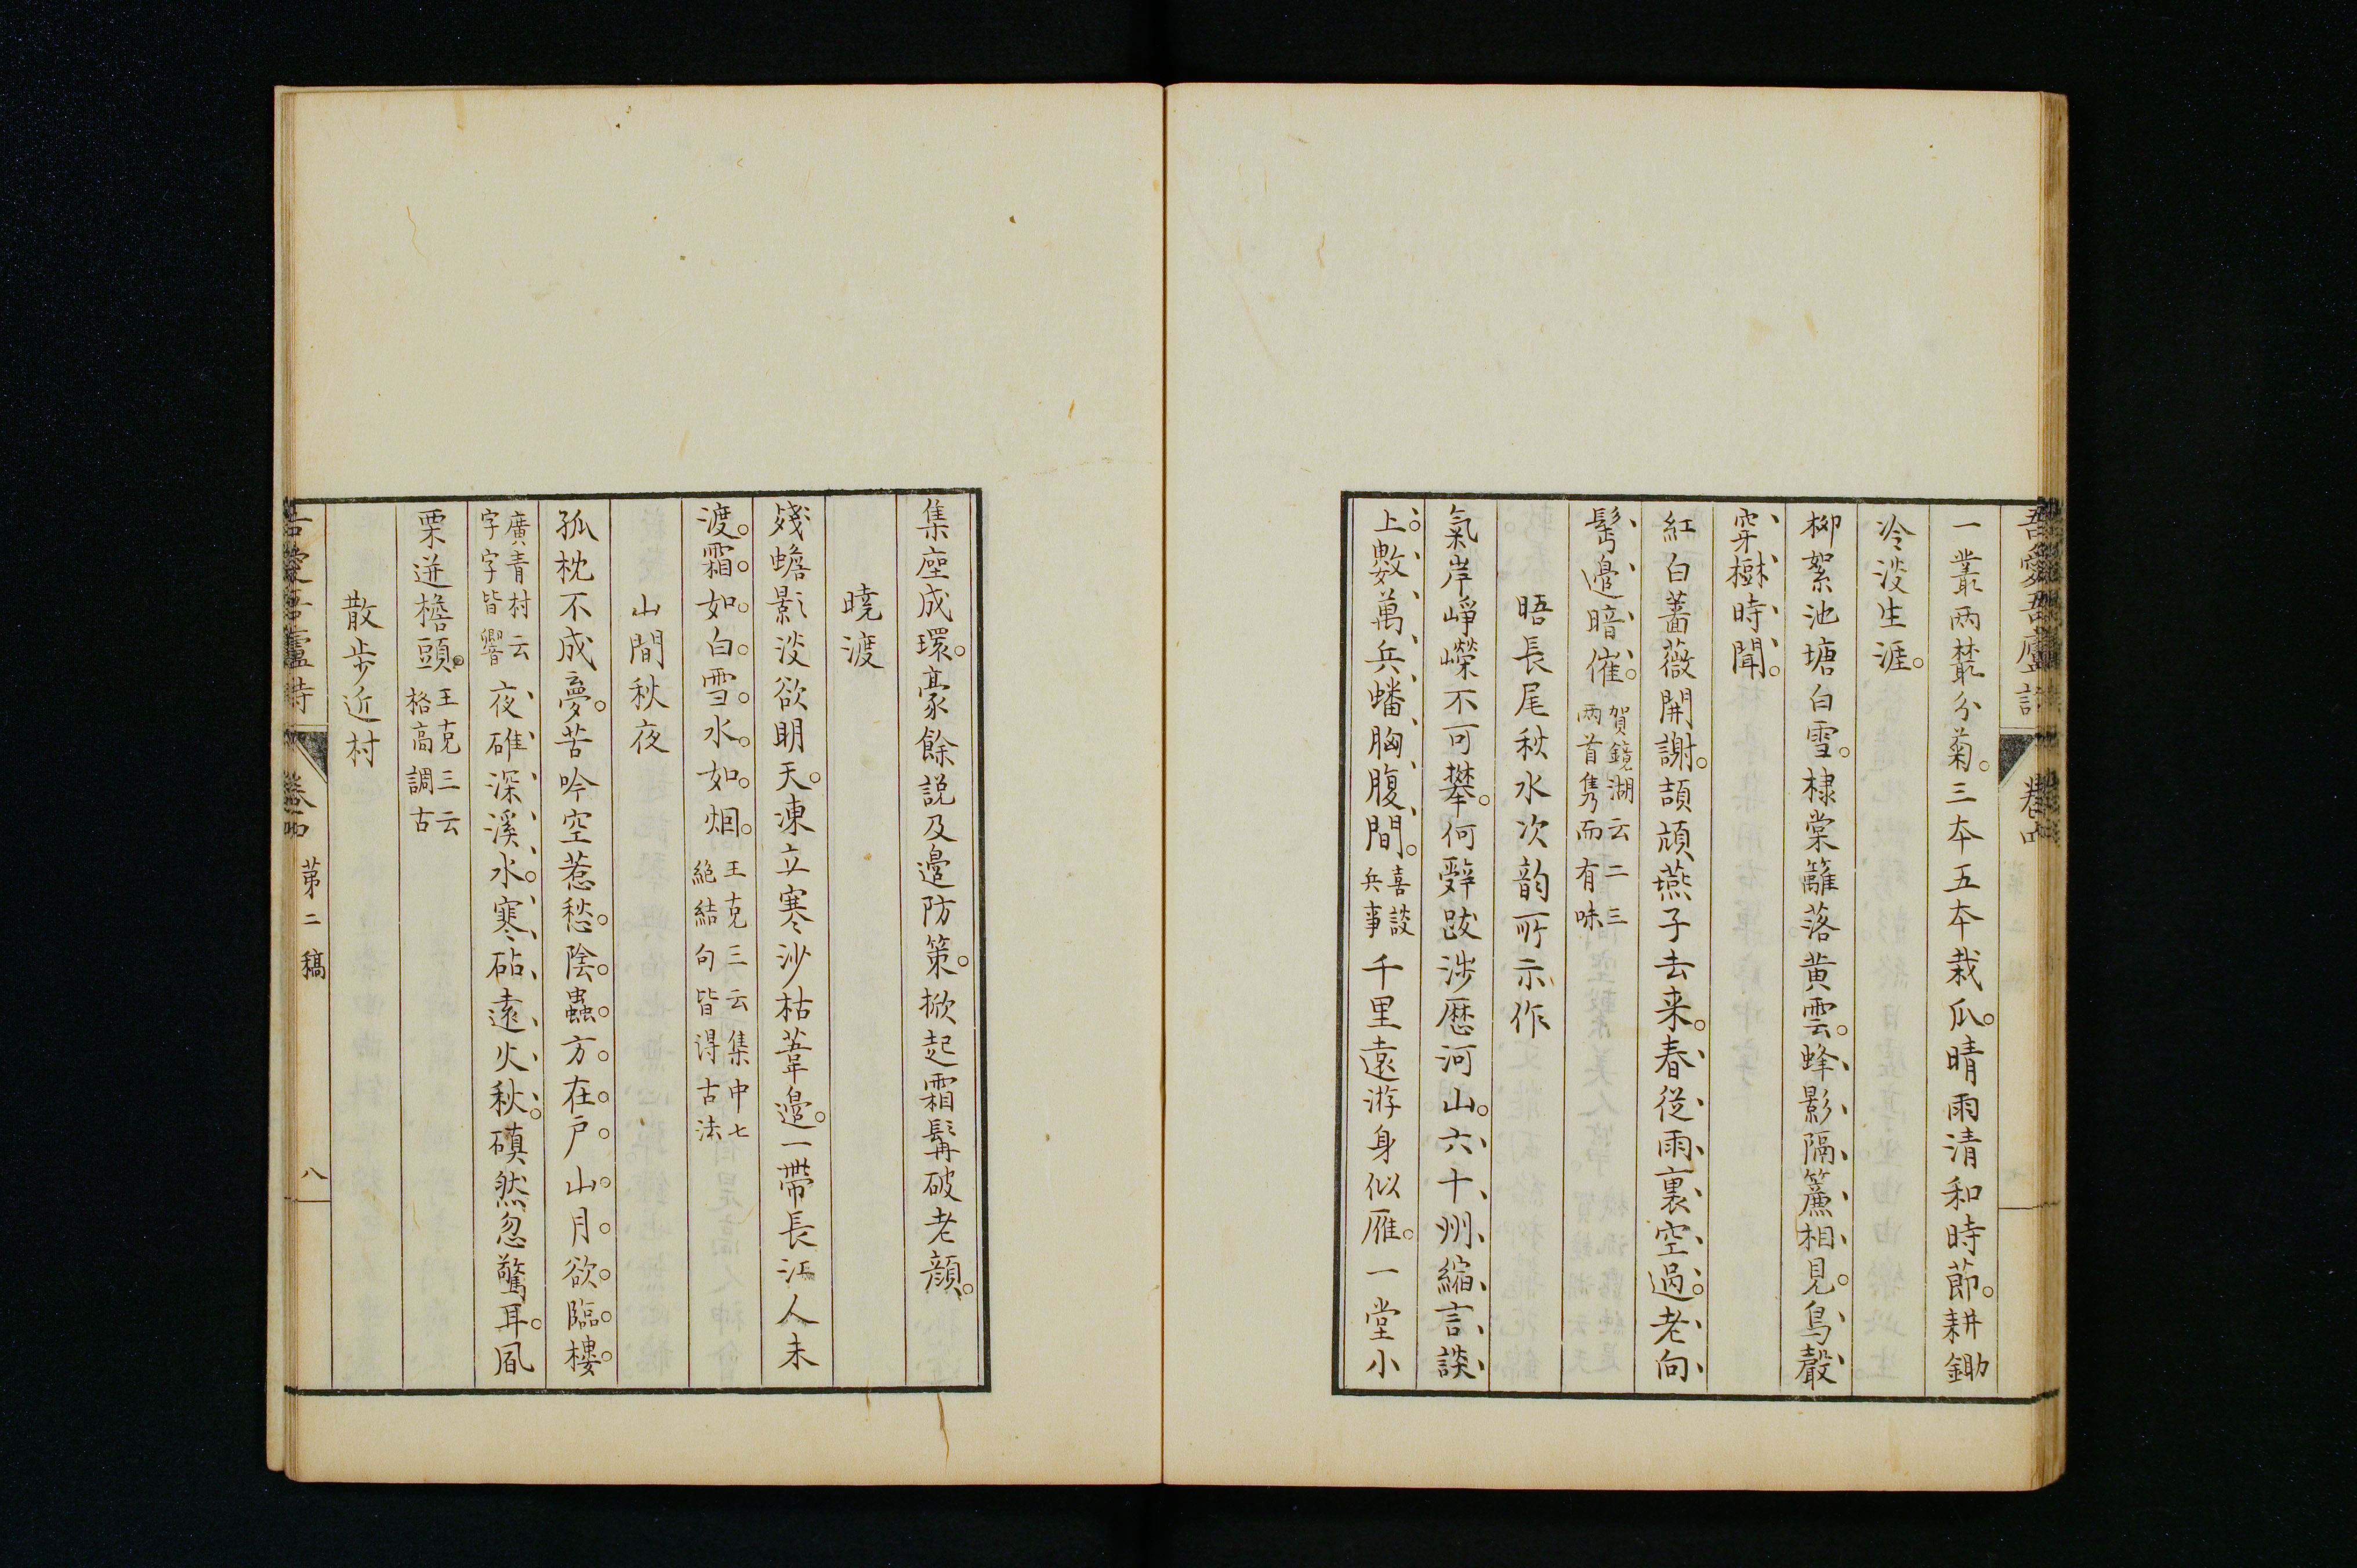 一叢兩叢分菊。三本五本栽瓜。晴雨清和時節。耕鋤
冷淡生涯。
柳絮池塘白雪。棣棠籬落黄雲。蜂影隔簾相見。鳥聲
穿樹時聞。
紅白薔薇開謝。頡頏燕子去来。春從雨裏空過。老向
髩邉暗催。賀鏡湖云二三
兩首雋而有味
晤長尾秋水次韵所示作
氣岸崢嶸不可攀。何辭跋渉歴河山。六十州縮言談
上。數萬兵蟠胸腹間。喜談
兵事千里遠游身似雁。一堂小
集座成環。豪餘説及邉防策。掀起霜髯破老顔。
曉渡
殘蟾影淡欲明天。凍立寒沙枯葦邉。一帶長江人未
渡。霜如白雪水如烟。王克三云集中七
絶結句皆得古法
山間秋夜
孤枕不成夢。苦吟空惹愁。陰蟲方在戸。山月欲臨樓。
廣青村云
字字皆響夜碓深溪水。寒砧遠火秋。磌然忽驚耳。風
栗迸檐頭。王克三云
格高調古
散步近村
第二稿
八